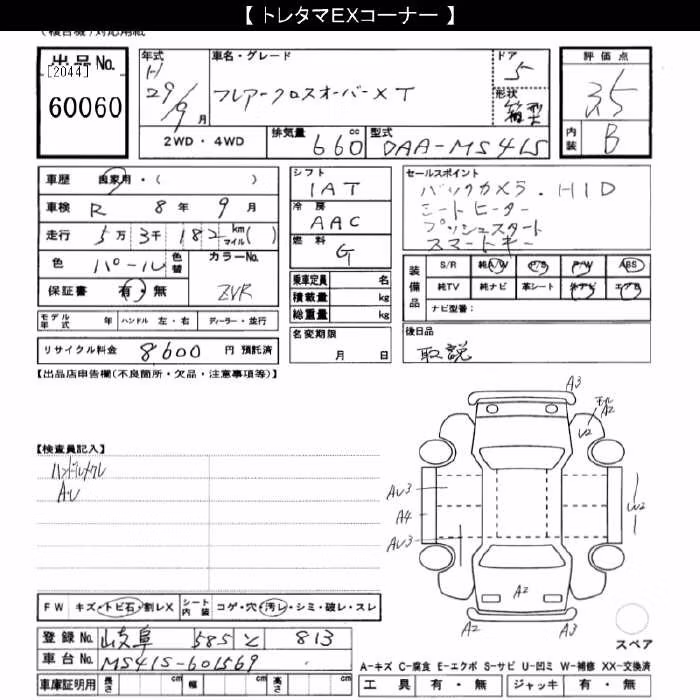 【 トレタマEXコーナー 】
(複合機)対応用紙
出品No.
[2044]
60060
年式
H
29/9 月
車名・グレード
フレアークロスオーバー XT
ドア
5
形状
箱型
2WD・4WD
排気量 660 cc
型式 DAA-MS41S
評価点
3.5
内装 B
車歴 自家用・( )
車検 R 8 年 9 月
走行 5万 3千 182 km マイル( )
色 パール
色替
カラーNo.
ZVR
保証書 有・無
シフト
IAT
冷房
AAC
燃料
G
乗車定員 名
積載量 kg
総重量 kg
セールスポイント
バックカメラ. HID
シートヒーター
プッシュスタート
スマートキー
装備品
S/R 純A/W P/S P/W ABS
純TV 純ナビ 革シート 外ナビ エアB
ナビ型番:
モデル年式 年 ハンドル 左・右 ディーラー・並行
名変期限
月 日
後日品
取説
リサイクル料金 8600 円 預託済
【出品店申告欄(不良箇所・欠品・注意事項等)】
【検査員記入】
ハンドルメクレ
A・U
A3
A2
U2
AU3
A4
AU3
W2
A2
A2
A3
FW キズ・トビ石・割レX
シート内装 コゲ・穴・汚レ・シミ・破レ・スレ
登録No. 岐阜 585 と 813
車台No. MS41S-601569
スペア
A-キズ C-腐食 E-エクボ S-サビ U-凹ミ W-補修 XX-交換済
車庫証明用 長さ cm 幅 cm 高さ cm
工具 有・無 ジャッキ 有・無